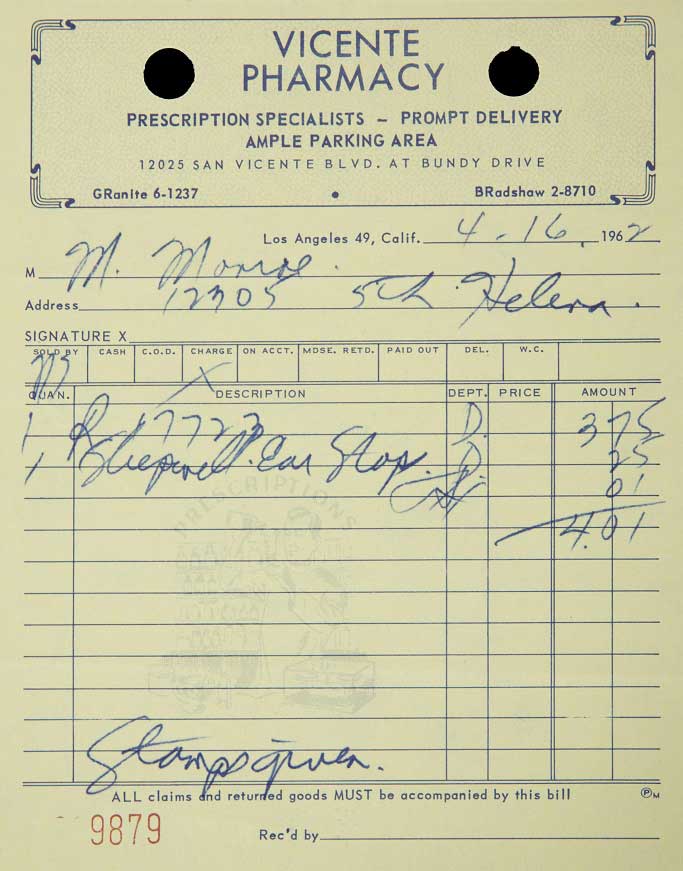 VICENTE
PHARMACY
PRESCRIPTION SPECIALISTS – PROMPT DELIVERY
AMPLE PARKING AREA
12025 SAN VICENTE BLVD. AT BUNDY DRIVE
GRanite 6-1237 • BRadshaw 2-8710
Los Angeles 49, Calif. 4-16, 1962
M M. Monroe.
Address 12305 5th Helena.
SIGNATURE X
SOLD BY CASH C.O.D. CHARGE ON ACCT. MDSE. RETD. PAID OUT DEL. W.C.
X
QUAN. DESCRIPTION DEPT. PRICE AMOUNT
1 Rx 17723 D. 375
1 Sleepwell Ear Stop. D. 25
01
4.01
PRESCRIPTIONS
Stamps given.
ALL claims and returned goods MUST be accompanied by this bill PM
9879 Rec'd by